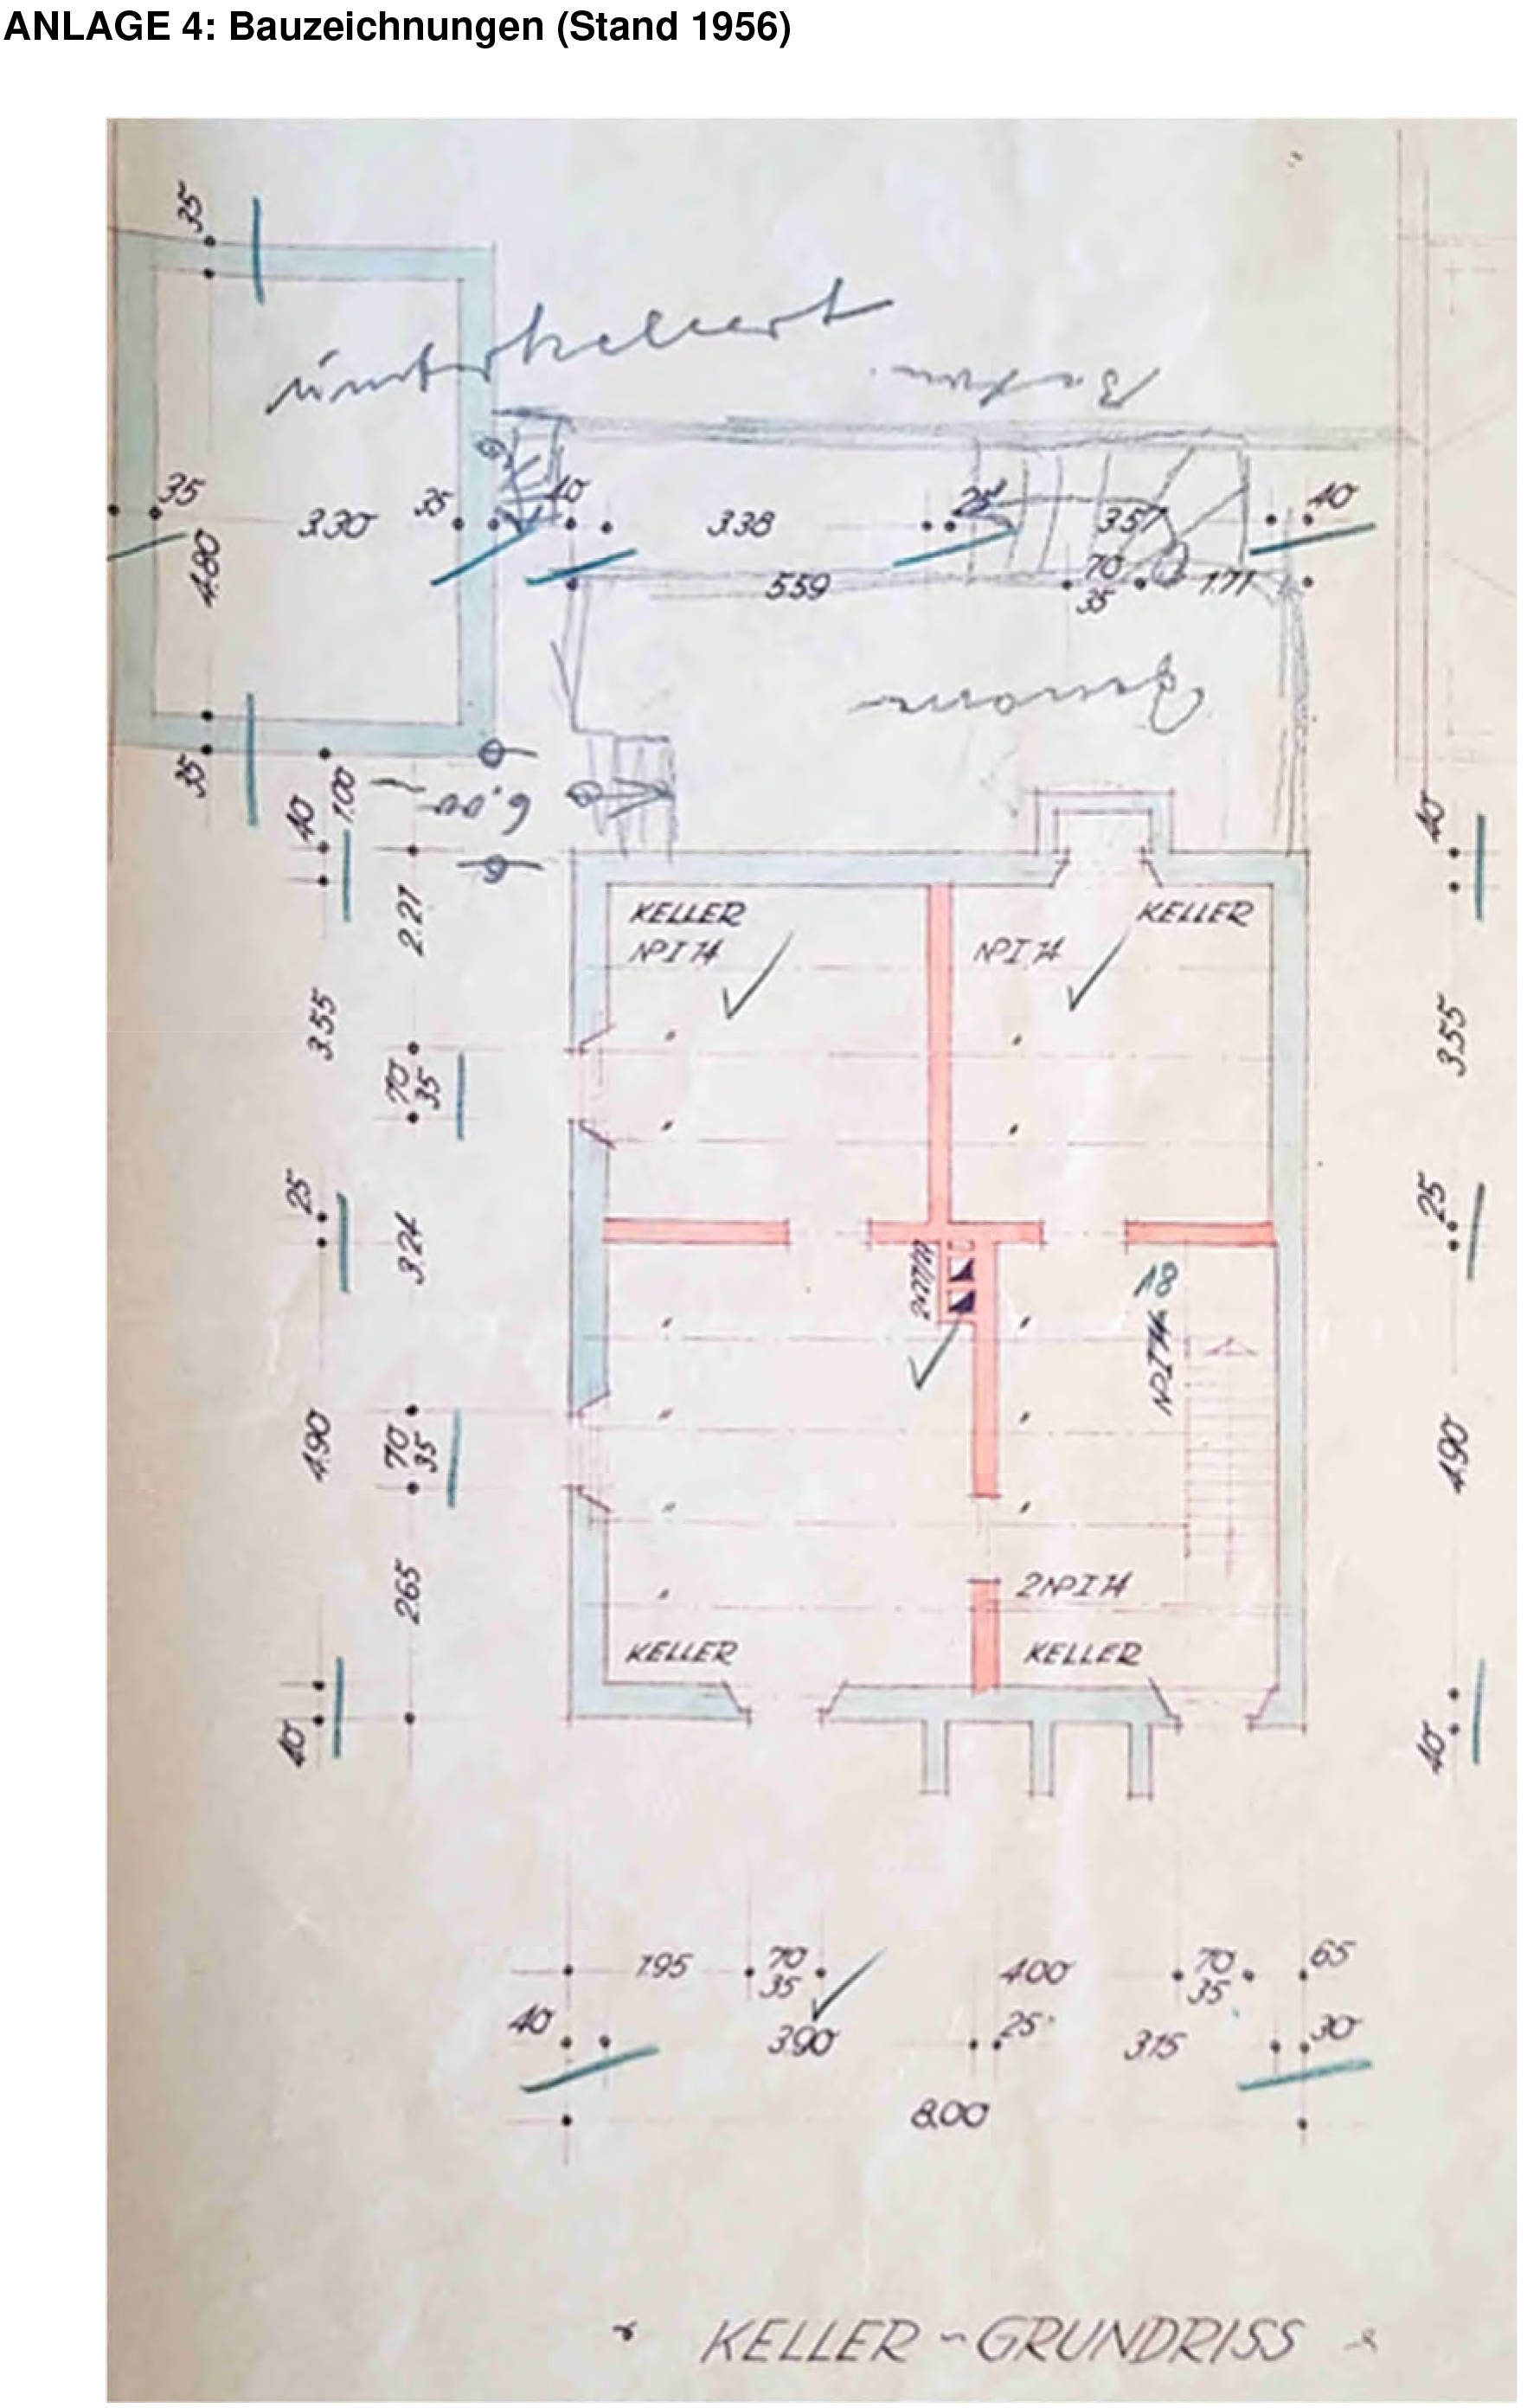 ANLAGE 4: Bauzeichnungen (Stand 1956)
35
unterkellert
35
330
35
40
338
25
357
40
480
559
70
35
1.71
35
40
1.00
40
2.21
KELLER
NP I 14
KELLER
NP I 14
3.55
70
35
355
25
324
25
18
NP I 14
490
70
35
490
265
2 NP I 14
KELLER
KELLER
40
40
195
70
35
400
70
35
65
40
390
25
315
30
8.00
KELLER - GRUNDRISS